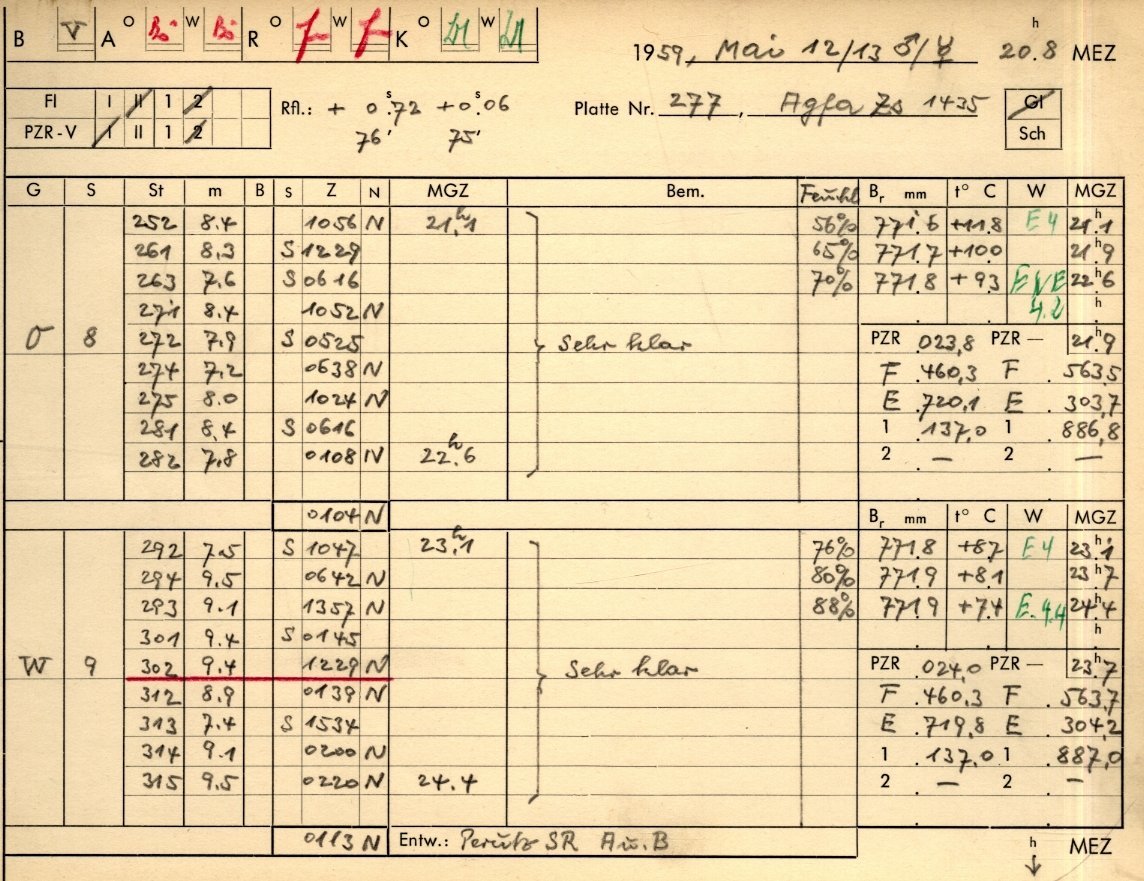 B V A O Bö W Bö R O f W f K O M W M 1959, Mai 12/13 ♂/☿ 20.8 h MEZ
FI I II 1 2 Rfl.: + 0.s72 +0.s06 Platte Nr. 277, Agfa Zs 1435 Gl
PZR-V I II 1 2 76' 75' Sch
G S St m B S Z N MGZ Bem. Feucht. Br mm t° C W MGZ
252 8.4 1056 N 21.h1 56% 771.6 +11.8 E4 21.h1
261 8.3 S 1229 65% 771.7 +10.0 21.h9
263 7.6 S 0616 70% 771.8 +9.3 ENE 22.h6
271 8.4 1052 N 4.2 h
O 8 272 7.9 S 0525 Sehr klar PZR .023,8 PZR — 21.h9
274 7.2 0638 N F .460,3 F .563,5
275 8.0 1024 N E .720,1 E .303,7
281 8.4 S 0616 1 .137,0 1 886,8
282 7.8 0108 N 22.h6 2 . — 2 . —
0104 N Br mm t° C W MGZ
292 7.5 S 1047 23.h1 76% 771.8 +8.7 E4 23.h1
294 9.5 0642 N 80% 771.9 +8.1 23.h7
293 9.1 1357 N 88% 771.9 +7.4 E.4.4 24.h4
301 9.4 S 0145 h
W 9 302 9.4 1229 N Sehr klar PZR .024,0 PZR — 23.h7
312 8.9 0139 N F .460,3 F .563,7
313 7.4 S 1534 E .719,8 E 304,2
314 9.1 0200 N 1 .137,0 1 .887,0
315 9.5 0220 N 24.4 2 . — 2 . —
0113 N Entw.: Perutz SR Au.B h MEZ